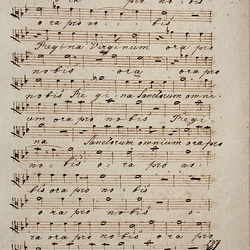 ra pro no bis
ora pro no : bis
Regina Virginum ora pro
nobis ora ora pro
nobis Re gi : na Sanctorum omni
um ora pro nobis Regi
na Sanctorum omnium ora pro
no : bis o : ra pro no :
bis ora pro no : bis
o ra pro nobis o
ra ora pro nobis